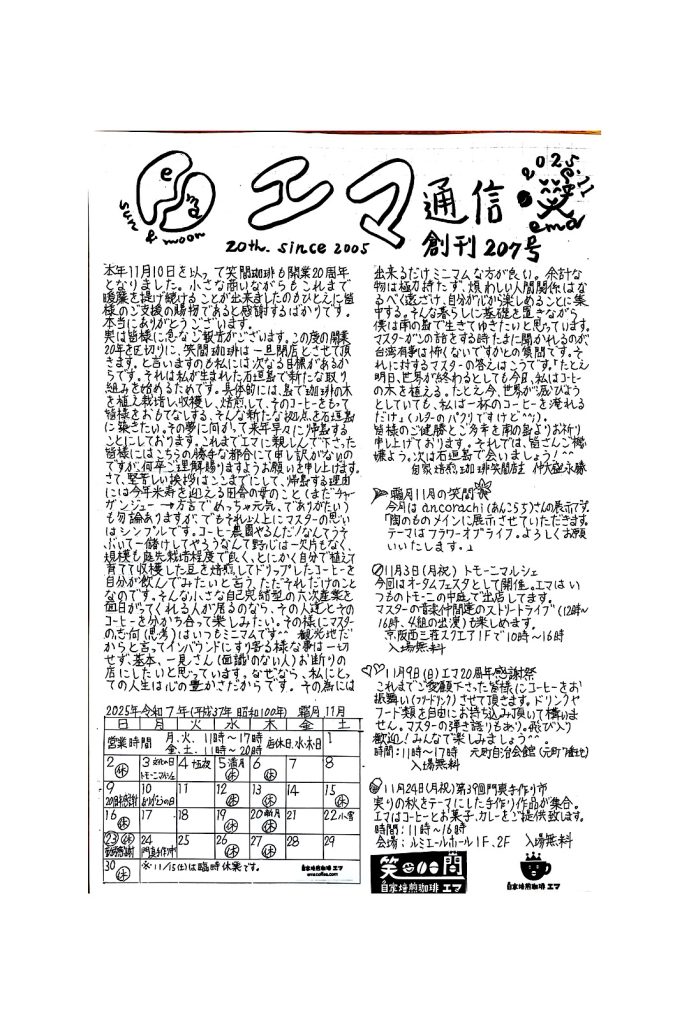 e ma
sun & moon
エマ 通信
2025.11
笑
ema
20th. since 2005
創刊207号
本年11月10日を以って笑間珈琲も開業20周年
となりました。小さな商いながらもこれまで
暖簾を提げ続けることが出来ましたのもひとえに皆
様のご支援の賜物であると感謝するばかりです。
本当にありがとうございます。
実は皆様に急なご報告がございます。この度の開業
20年を区切りに、笑間珈琲は一旦閉店とさせて頂
きます。と言いますのも私には次なる目標があるか
らです。それは私が生まれた石垣島で新たな取り
組みを始めるためです。具体的には、島で珈琲の木
を植え栽培し、収穫し、焙煎して、そのコーヒーをもって
皆様をおもてなしする、そんな新たな拠点を石垣島
に築きたい。その夢に向かって来年早々に帰島する
ことにしております。これまでエマに親しんで下さった
皆様にはこちらの勝手な都合にて申し訳がないの
ですが、何卒ご理解賜りますようお願いを申し上げます。
さて、堅苦しい挨拶はここまでにして、帰島する理由
には今年米寿を迎える田舎の母のこと(まだチャー
ガンジュー→方言でめっちゃ元気、でありがたい)
も勿論ありますが、でもそれ以上にマスターの思い
はシンプルです。コーヒー農園やるんだ!なんてうそ
ぶいて一儲けしてやろうなんて野心は一欠片もなく、
規模も庭先栽培程度で良く、とにかく自分で植えて
育てて収穫した豆を焙煎してドリップしたコーヒーを
自分が飲んでみたいと言う、ただそれだけのこと
なのです。そんな小さな自己完結型の六次産業を
面白がってくれる人が居るのなら、その人達とその
コーヒーを分かち合って楽しみたい。その様にマスター
の志向(思考)はいつもミニマムです^^ 観光地だ
からと言ってインバウンドにすり寄る様な事は一切
せず、基本、一見さん(面識のない人)お断りの
店にしたいと思っています。なぜなら、私にとっ
ての人生は心の豊かさだからです。その為には
出来るだけミニマムな方が良い。余計な
物は極力持たず、煩わしい人間関係はな
るべく遠ざけ、自分が心から楽しめることに集
中する。そんな暮らしに基礎を置きながら
僕は南の島で生きてゆきたいと思っています。
マスターがこの話をする時たまに聞かれるのが
台湾有事は怖くないですかとの質問です。そ
れに対するマスターの答えはこうです。「たとえ
明日、世界が終わるとしても今日、私はコーヒー
の木を植える。たとえ今、世界が滅びよう
としていても、私は一杯のコーヒーを淹れる
だけ。」(ルターのパクリですけど^^;)。
皆様のご健勝とご多幸を南の島よりお祈り
申し上げております。それでは、皆さんご機
嫌よう。次は石垣島で会いましょう!^^
自家焙煎珈琲笑間店主 仲大盛永勝
霜月11月の笑間
今月はancorachi(あんこらち)さんの展示です。
「陶のものメインに展示させていただきます。
テーマはフラワーオブライフ。よろしくお願
いいたします。」
11月3日(月祝) トモーニマルシェ
今回はオータムフェスタとして開催。エマはい
つものトモーニの中庭で出店してます。
マスターの音楽仲間達のストリートライブ(12時〜
16時、4組の出演)も楽しめます。
京阪西三荘スクエア1Fで10時〜16時
入場無料
11月9日(日)エマ20周年感謝祭
これまでご愛顧下さった皆様にコーヒーをお
振舞い(フリードリンク)させて頂きます。ドリンクや
フード類を自由にお持ち込み頂いて構いま
せん。マスターの弾き語りもあり。飛び入り
歓迎!みんなで楽しみましょう^^
時間:11時〜17時 元町自治会館
入場無料
11月24日(月祝)第39回門真手作り市
実りの秋をテーマにした手作り作品が集合。
エマはコーヒーとお菓子、カレーをご提供致します。
時間:11時〜16時
会場:ルミエールホール1F、2F 入場無料
2025年令和7年(平成37年 昭和100年) 霜月11月
日 月 火 水 木 金 土
営業時間 月.火. 11時〜17時 店休日.水・木・日 1
金.土. 11時〜20時
2 休 3 文化の日 トモーニマルシェ 4 5 満月 休 6 休 7 8
9 20周年感謝祭 10 11 12 休 13 休 14 15 休
16 休 17 18 19 休 20 新月 休 21 22 小雪
23 休 勤労感謝 24 門真手作り市 25 26 休 27 休 28 29
30 休 ※11/15(土)は臨時休業です。
自家焙煎珈琲 エマ
笑間
自家焙煎珈琲 エマ
自家焙煎珈琲 エマ